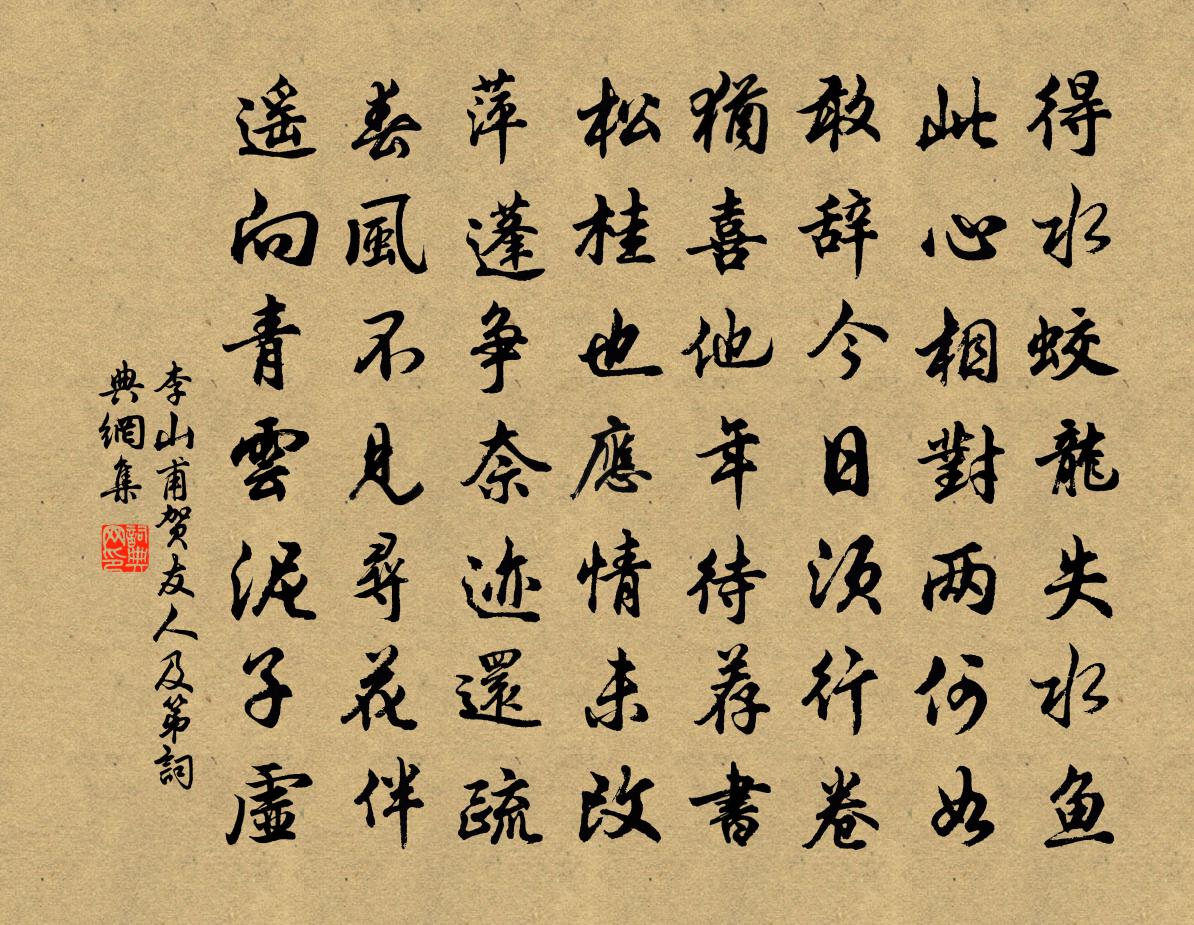 得水蛟龍失水鱼
此心相對两何如
敢辞今日须行卷
猶喜他年待荐書
松桂也應情未改
萍蓬争奈迹還疏
春風不见尋花伴
遥向青雲泥子虚
李山甫贺友人及第詞
典網集
詞典网印